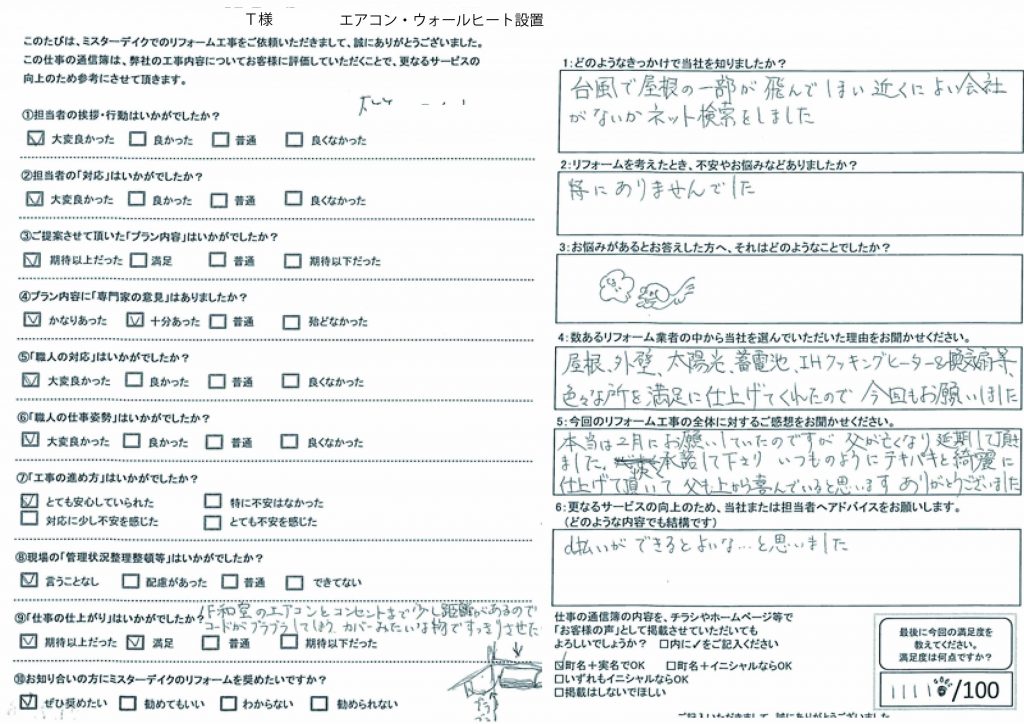 T様 エアコン・ウォールヒート設置
このたびは、ミスターデイクでのリフォーム工事をご依頼いただきまして、誠にありがとうございました。
この仕事の通信簿は、弊社の工事内容についてお客様に評価していただくことで、更なるサービスの
向上のため参考にさせて頂きます。
①担当者の挨拶・行動はいかがでしたか?
大変良かった 良かった 普通 良くなかった
②担当者の「対応」はいかがでしたか?
大変良かった 良かった 普通 良くなかった
③ご提案させて頂いた「プラン内容」はいかがでしたか?
期待以上だった 満足 普通 期待以下だった
④プラン内容に「専門家の意見」はありましたか?
かなりあった 十分あった 普通 殆どなかった
⑤「職人の対応」はいかがでしたか?
大変良かった 良かった 普通 良くなかった
⑥「職人の仕事姿勢」はいかがでしたか?
大変良かった 良かった 普通 良くなかった
⑦「工事の進め方」はいかがでしたか?
とても安心していられた 特に不安はなかった
対応に少し不安を感じた とても不安を感じた
⑧現場の「管理状況整理整頓等」はいかがでしたか?
言うことなし 配慮があった 普通 できてない
⑨「仕事の仕上がり」はいかがでしたか?
和室のエアコンとコンセントまで少し距離があるので
コードがブラブラしてしまう カバーみたいな物ですっきりさせた
期待以上だった 満足 普通 期待以下だった
⑩お知り合いの方にミスターデイクのリフォームを奨めたいですか?
ぜひ奨めたい 勧めてもいい わからない 勧められない
1:どのようなきっかけで当社を知りましたか?
台風で屋根の一部が飛んでしまい近くによい会社
がないかネット検索をしました
2:リフォームを考えたとき、不安やお悩みなどありましたか?
特にありませんでした
3:お悩みがあるとお答えした方へ、それはどのようなことでしたか?
4:数あるリフォーム業者の中から当社を選んでいただいた理由をお聞かせください。
屋根、外壁、太陽光、蓄電池、IHクッキングヒーター&換気扇等、
色々な所を満足に仕上げてくれたので 今回もお願いしました
5:今回のリフォーム工事の全体に対するご感想をお聞かせください。
本当は2月にお願いしていたのですが 父が亡くなり延期して頂き
ました。承諾して下さり いつものようにテキパキと綺麗に
仕上げて頂いて 父も上から喜んでいると思います ありがとうございました
6:更なるサービスの向上のため、当社または担当者へアドバイスをお願いします。
(どのような内容でも結構です)
d払いができるとよいな…と思いました
仕事の通信簿の内容を、チラシやホームページ等で
「お客様の声」として掲載させていただいても
よろしいでしょうか? □内に✓をご記入ください
町名+実名でOK □町名+イニシャルならOK
□いずれもイニシャルならOK
□掲載はしないでほしい
最後に今回の満足度を
教えてください。
満足度は何点ですか?
/100
ご記入いただきまして、誠にありがとうございました